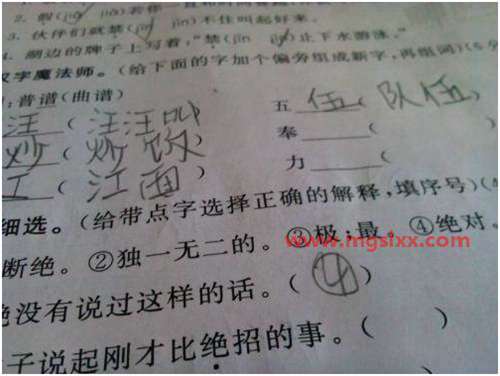 3. 伙伴们就禁(jīn jìn)不住叫起好来。
4. 湖边的牌子上写着,"禁(jīn jìn)止下水游泳。"
汉字魔法师。(给下面的字加个偏旁组成新字,再组词)(6分
:普谱(曲谱) 五 伍 ( 队伍 )
汪 ( 汪汪叫 奉 (
炒 ( 炒饭 力 (
工 ( 江面 )
细选。(给带点字选择正确的解释,填序号)(4
断绝。②独一无二的。③极;最。④绝对。
www.mgslxx.com
绝没有说过这样的话。( ④ )
子说起刚才比绝招的事。( )